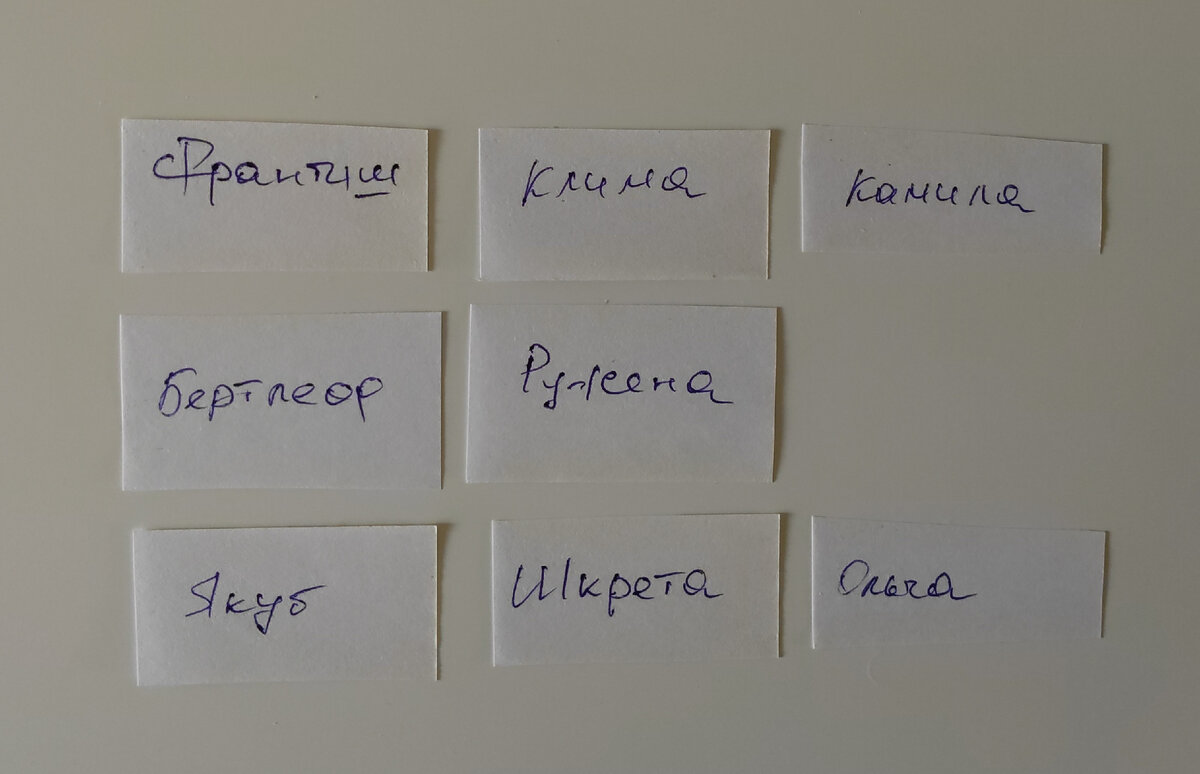 Франтиш
Клима
Камила
Бертлеф
Ружена
Якуб
Шкрета
Ольга